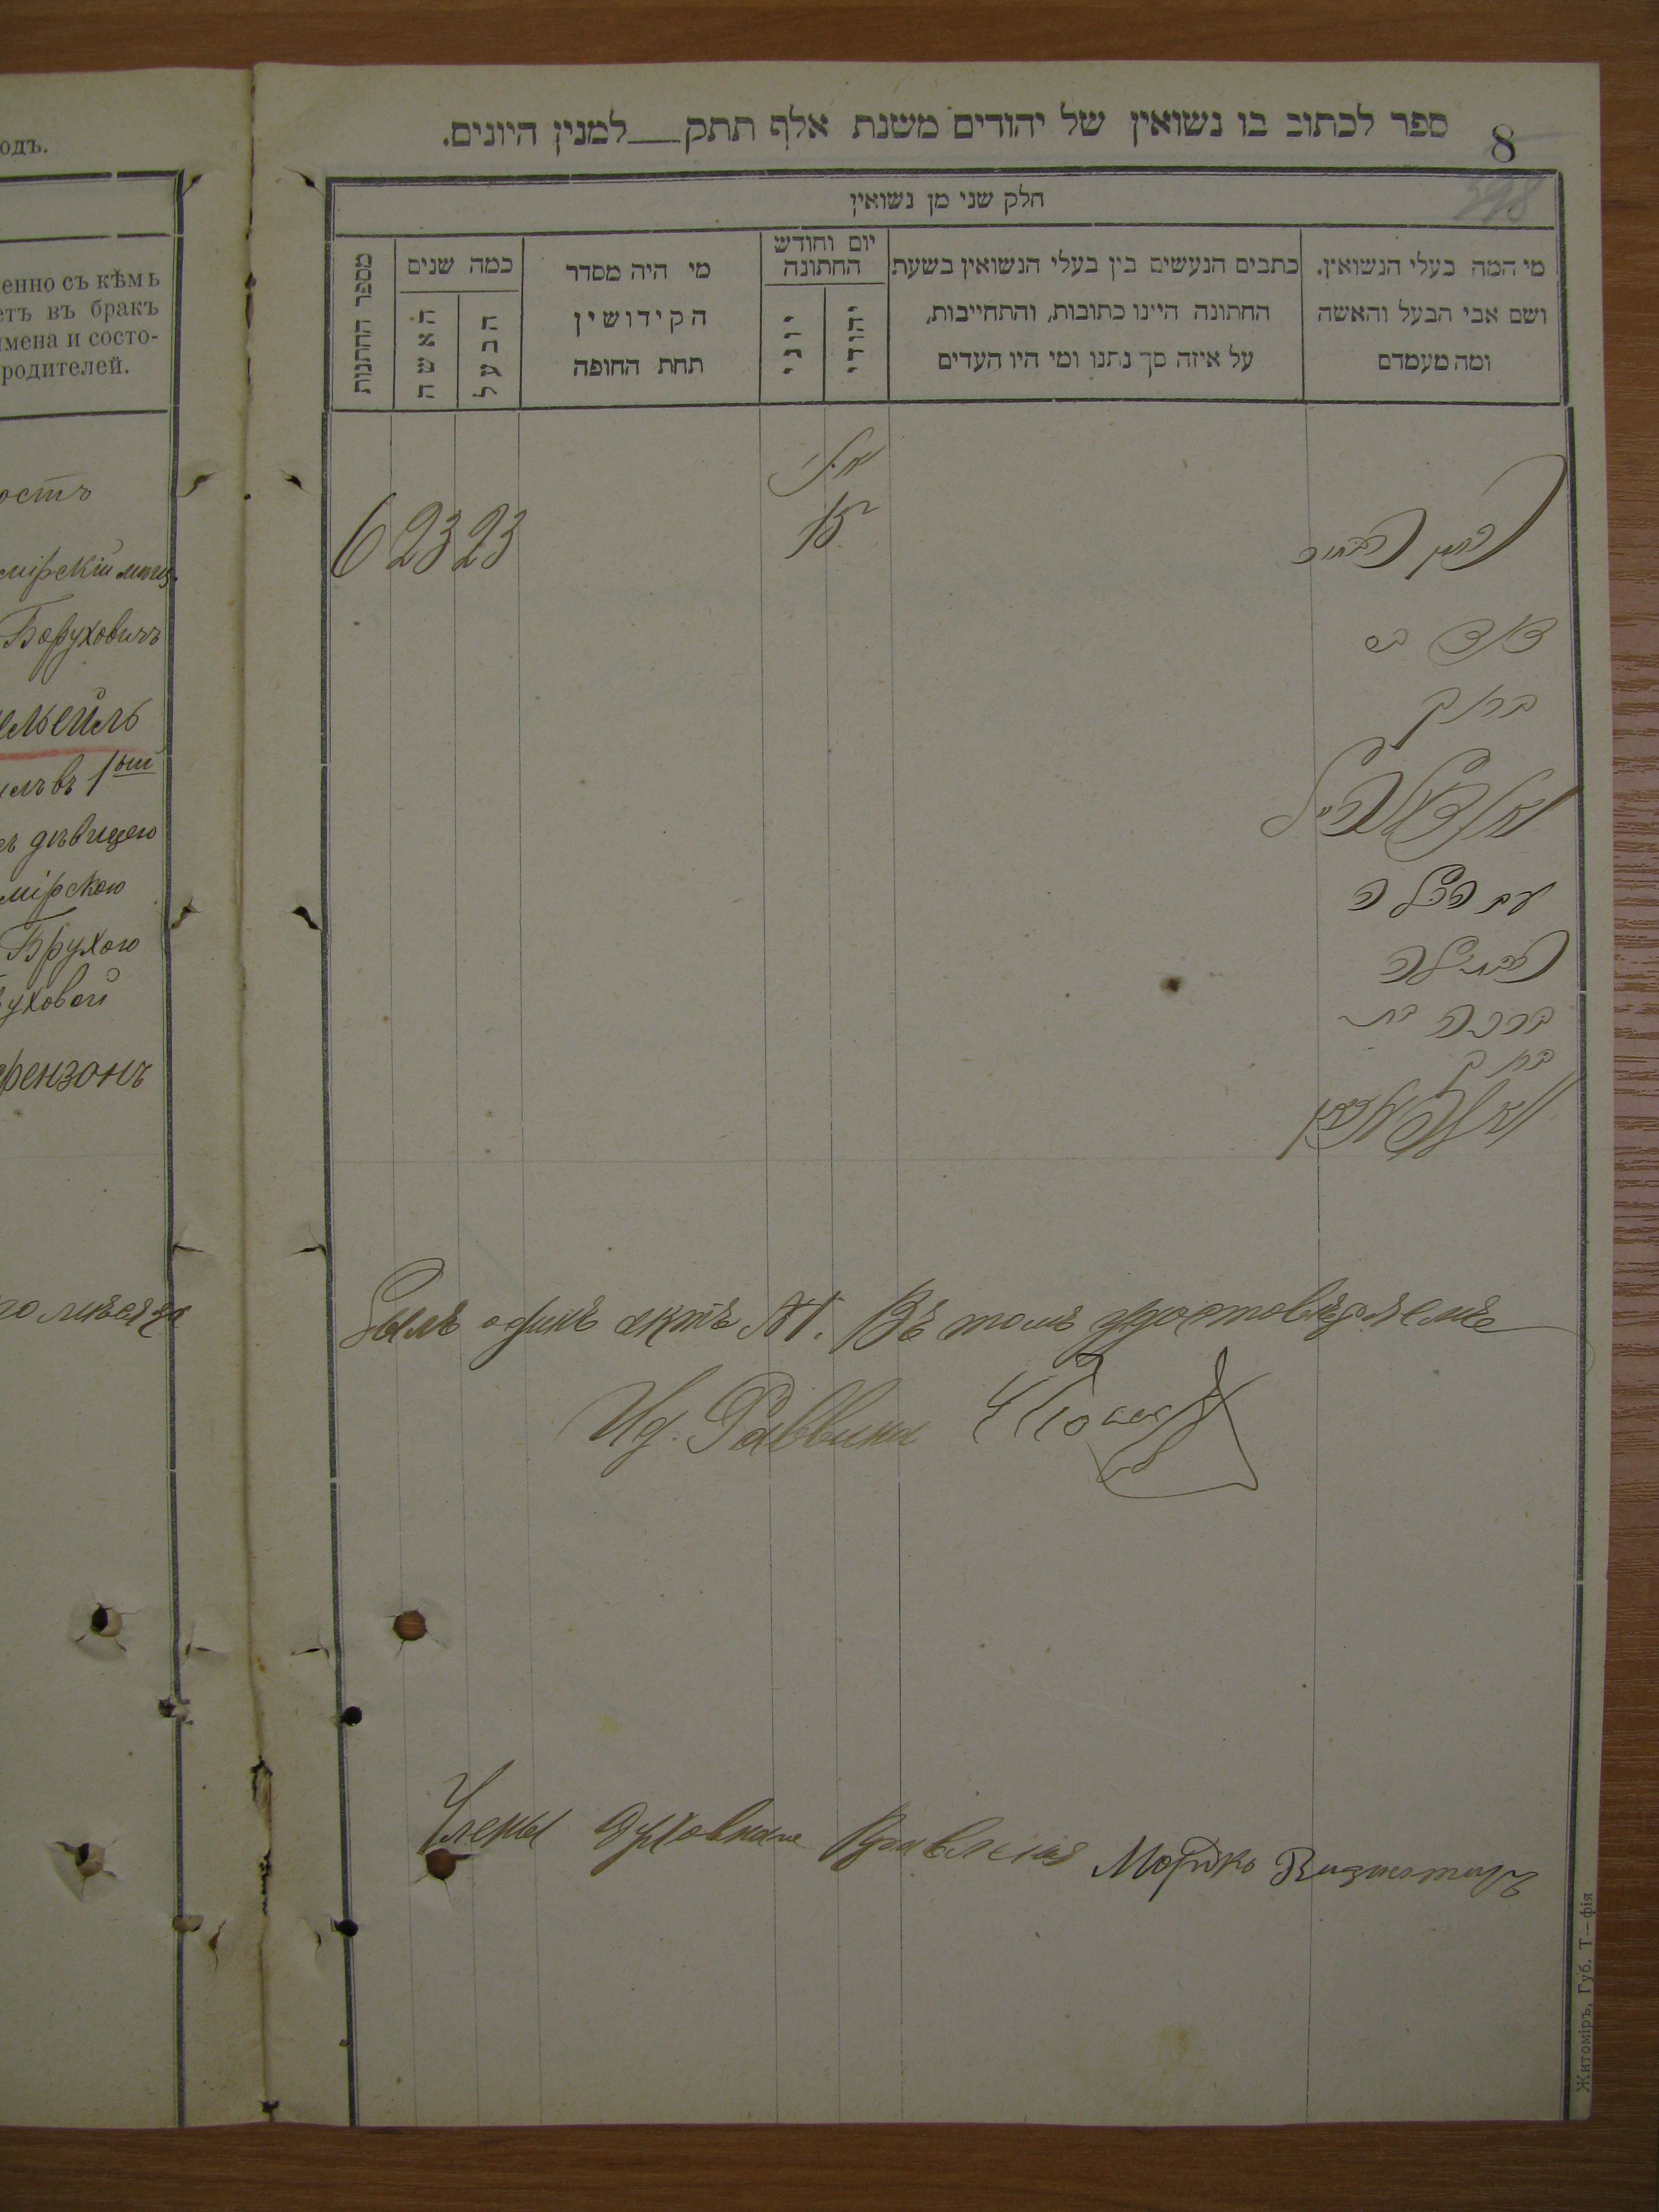 одъ.
енно съ кѣмъ
етъ въ бракъ
имена и состо-
родителей.
ость
Боруховичъ
1ый
дѣвицею
мірскою
Брухою
уховой
ензонъ
8
ספר לכתוב בו נשואין של יהודים משנת אלף תתק___למנין היונים.
חלק שני מן נשואין
מי המה בעלי הנשואין.
ושם אבי הבעל והאשה
ומה מעמדם
כתבים הנעשים בין בעלי הנשואין בשעת
החתונה היינו כתובות, והתחייבות,
על איזה סך נתנו ומי היו העדים
יום וחודש
החתונה
יהודי
יוני
מי היה מסדר
הקידושין
תחת החופה
כמה שנים
הבעל
האשה
מספר החתנות
6 23 23
15
החתן הבחור
דוד בר
ברוך
עם הכלה
הבתולה
ברכה בת
ברוך
Былъ одинъ актъ №1. Въ томъ удостовѣряемъ
Ид. Раввина
Члены духовнаго Правленія Мордко
Житоміръ, Губ. Т—фія